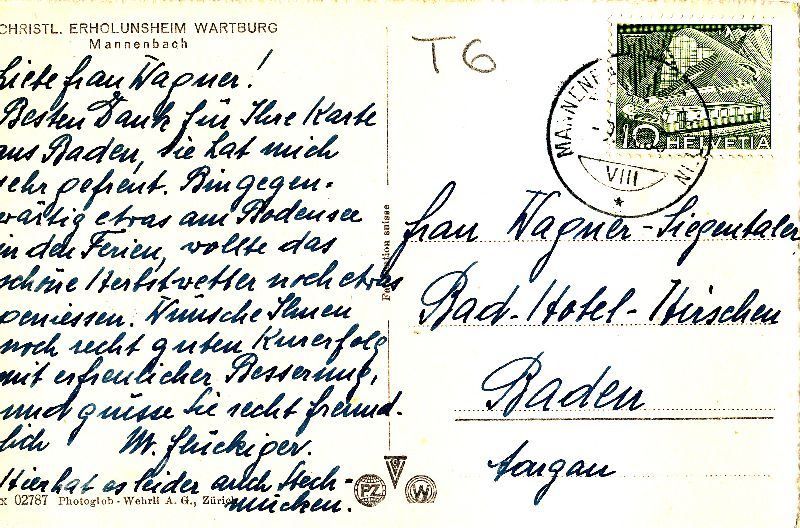 CHRISTL. ERHOLUNSHEIM WARTBURG
Mannenbach
Liebe Frau Wagner!
Besten Dank für Ihre Karte
aus Baden, die hat mich
sehr gefreut. Bin gegen-
wärtig etwas am Bodensee
in den Ferien, wollte das
schöne Herbstwetter noch etwas
geniessen. Wünsche Ihnen
noch recht guten Kurerfolg
mit erfreulicher Besserung,
und grüsse Sie recht freund-
lich M. Flückiger.
Hier hat es leider auch Stech-
mücken.
02787 Photoglob - Wehrli A. G., Zürich
suisse
PZ
W
T6
VIII
10 HELVETIA
Frau Wagner-Siegentaler
Bad-Hotel-Hirschen
Baden
Aargau